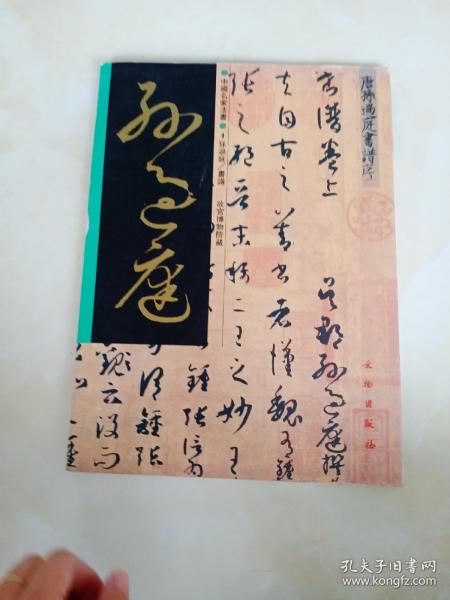 孙过庭
●中國名家法書●4 孫過庭/書譜 故宮博物院藏
唐孫過庭書譜序
書譜卷上 吴郡孫過庭撰
夫自古之善書者漢魏有鍾
張之絕晉末稱二王之妙王
文物出版社
孔夫子旧书网
www.kongfz.com